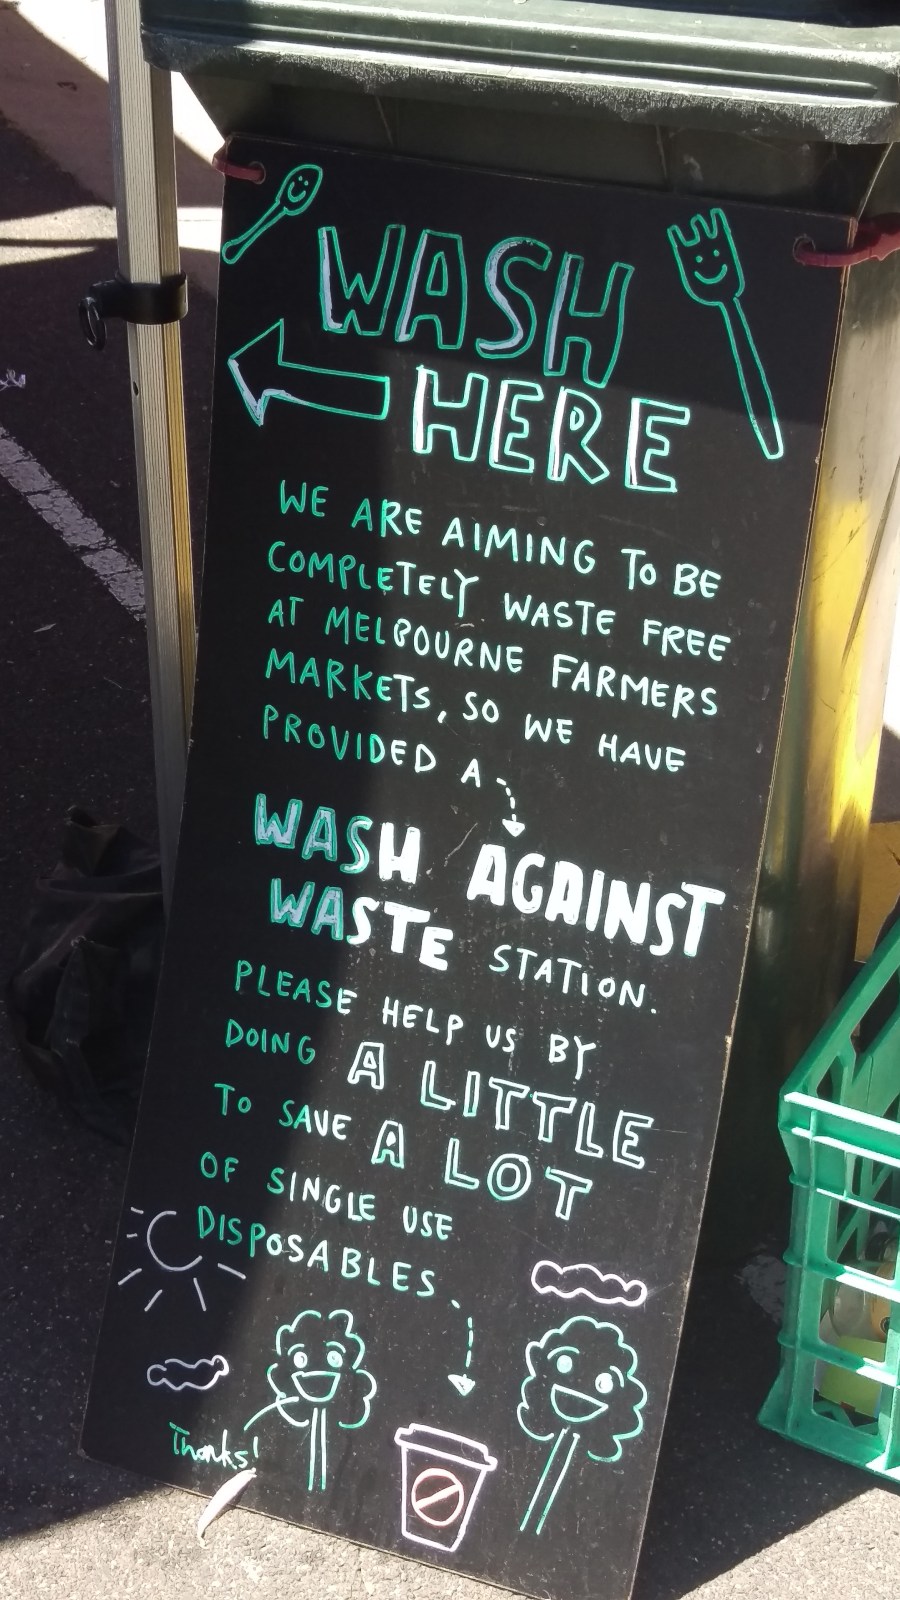 WASH
HERE
WE ARE AIMING TO BE
COMPLETELY WASTE FREE
AT MELBOURNE FARMERS
MARKETS, SO WE HAVE
PROVIDED A
WASH AGAINST
WASTE STATION.
PLEASE HELP US BY
DOING A LITTLE
TO SAVE A LOT
OF SINGLE USE
DISPOSABLES.
Thanks!